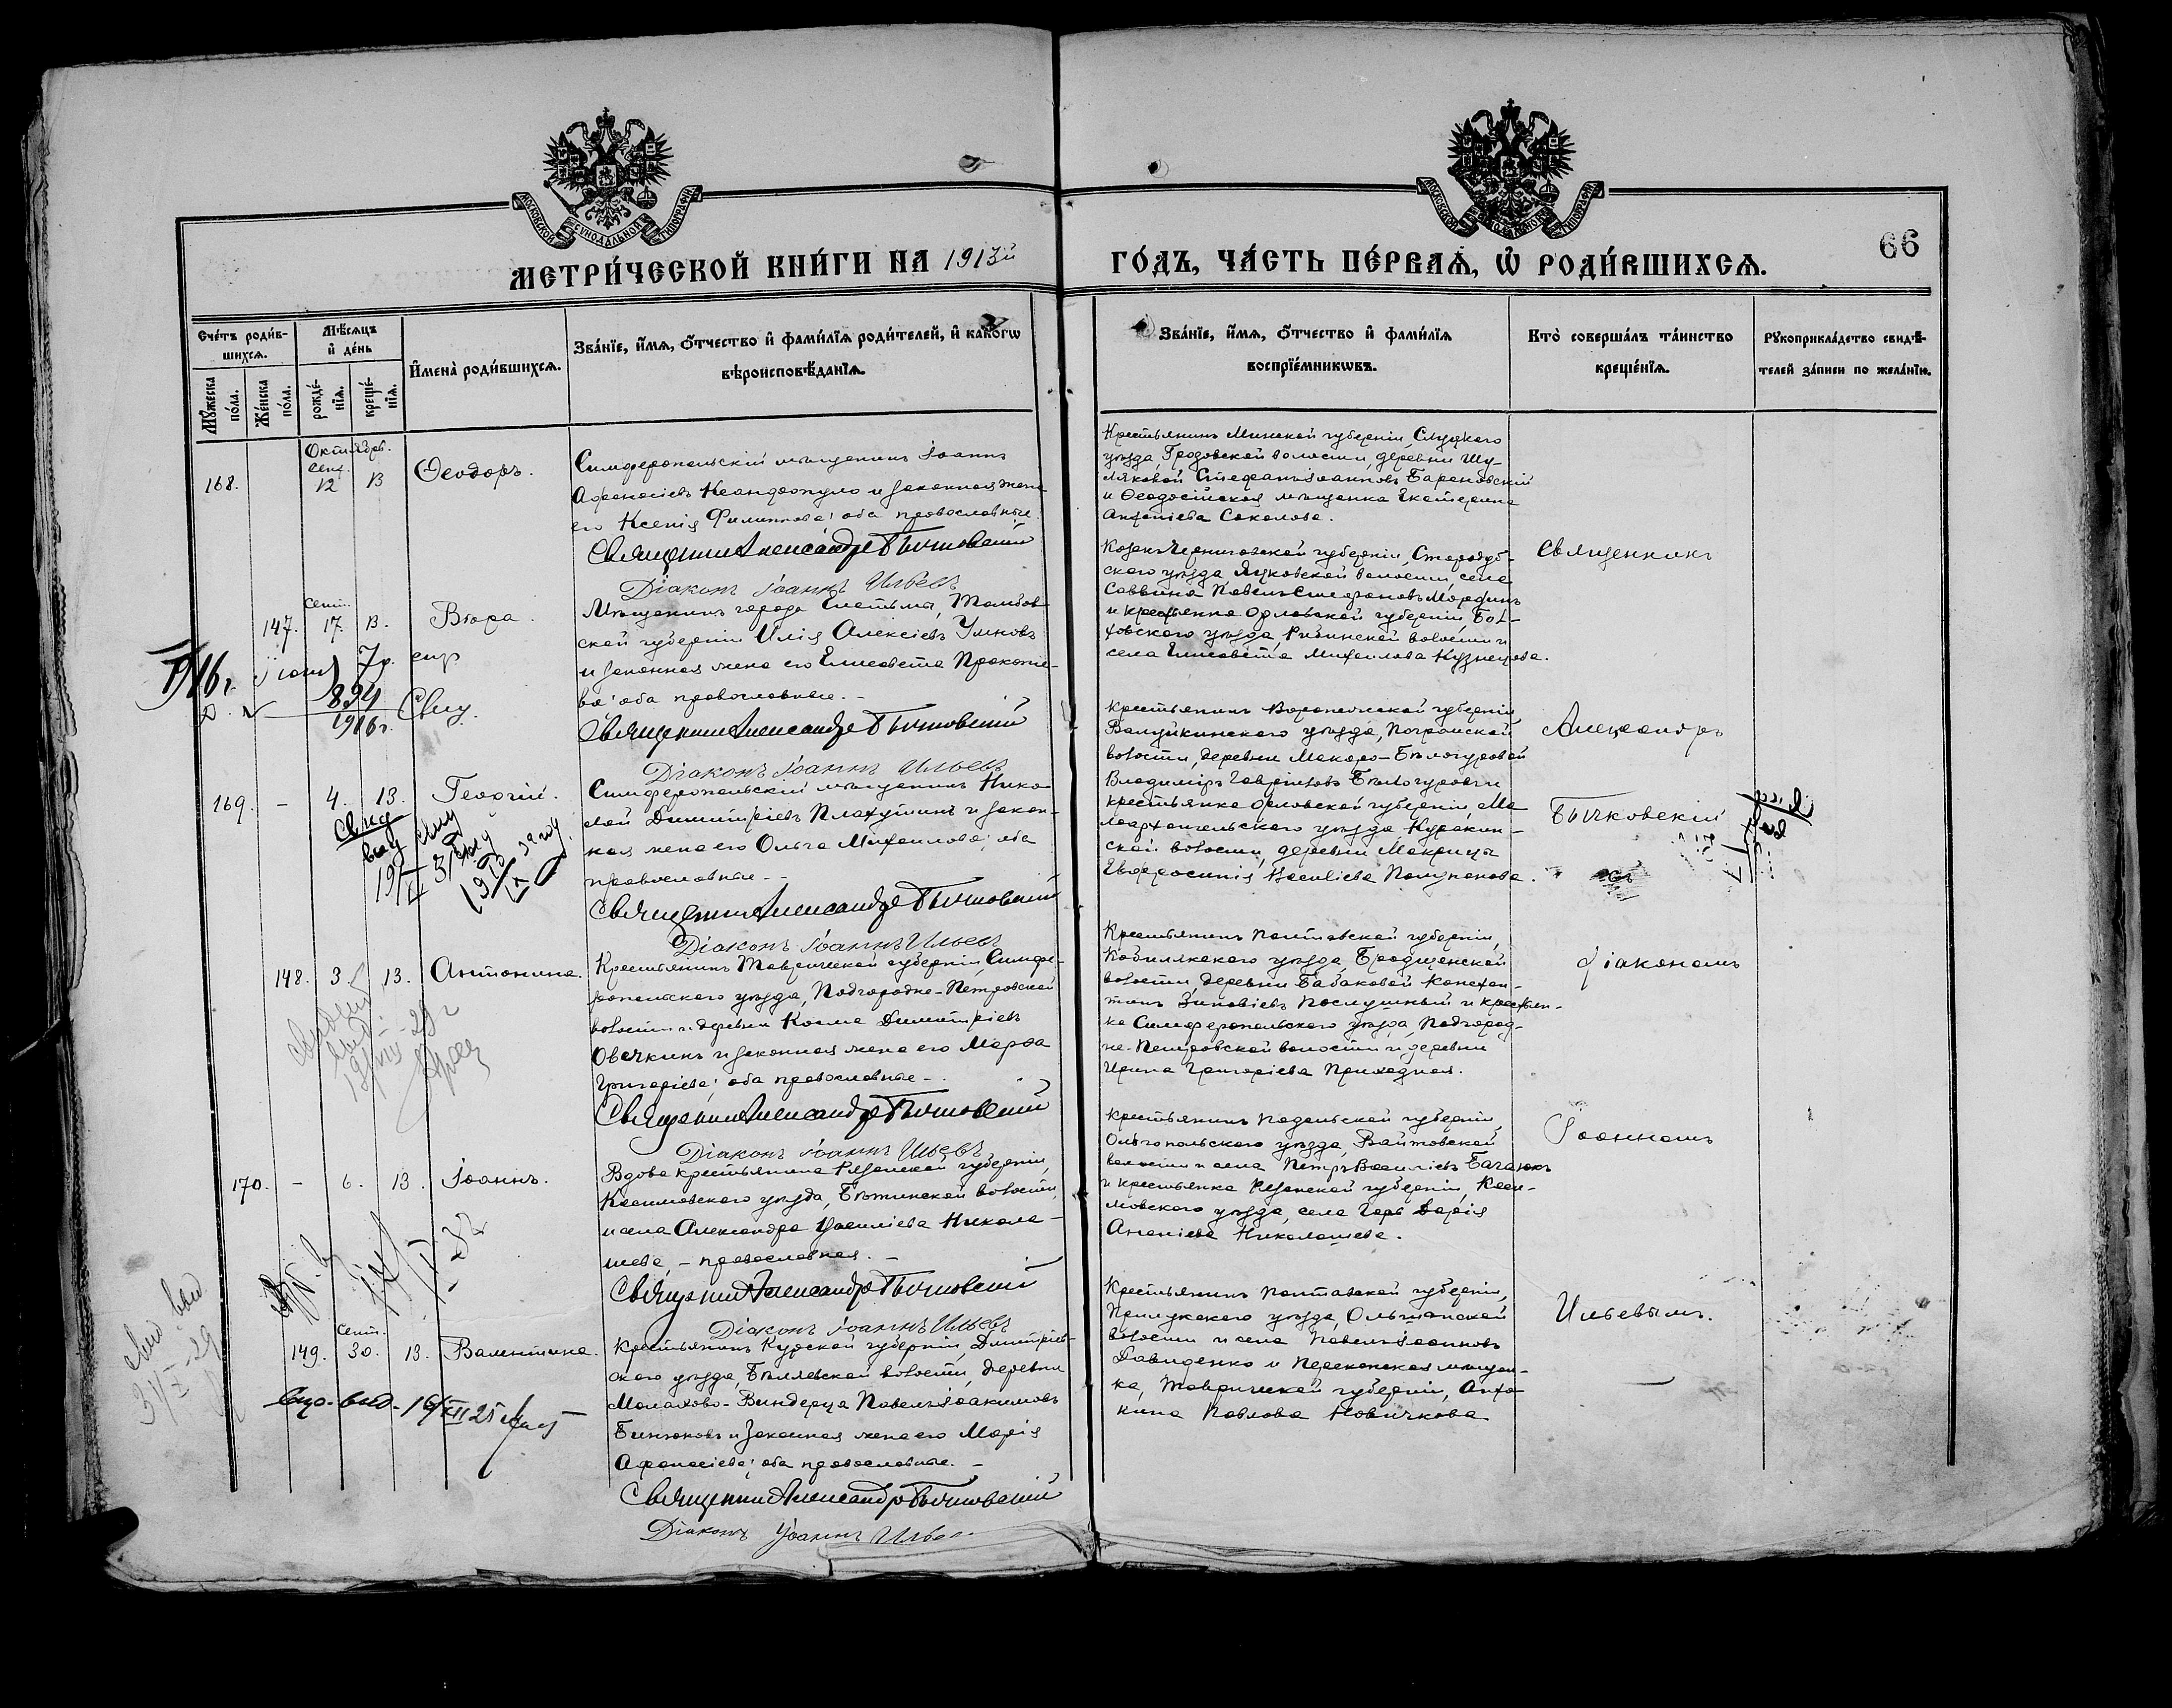 МОСКОВСКОЙ СѴНОДАЛЬНОЙ ТИПОГРАФІИ
МОСКОВСКОЙ СѴНОДАЛЬНОЙ ТИПОГРАФІИ
МЕТРИ́ЧЕСКОЙ КНИ́ГИ НА 1913й
ГО́ДЪ, ЧА́СТЬ ПЕ́РВАѦ, Ѡ҆ РОДИ́ВШИХСѦ.
66
Сче́тъ роди́в-
шихсѧ.
Мѣ́сѧцъ
и҆ де́нь
И҆мена̀ роди́вшихсѧ.
Зва́нїе, и҆́мѧ, ѻ҆́тчество и҆ фами́лїѧ роди́телей, и҆ како́гѡ
вѣроисповѣ́данїѧ.
Зва́нїе, и҆́мѧ, ѻ҆́тчество и҆ фами́лїѧ
воспрїе́мникѡвъ.
Кто̀ соверша́лъ та́инство
креще́нїѧ.
Рꙋкоприкла́дство свидѣ́-
телей за́писи по жела́нїю.
Мꙋ́жеска
по́ла.
Же́нска
по́ла.
рожде́-
нїѧ.
креще́-
нїѧ.
Октябрь.
168.
Сент.
12
13
Ѳеодоръ.
Симферопольскій мѣщанинъ Іоаннъ
Афанасіевъ Ксандопуло и законная жена
его Ксенія Филиппова; оба православные
Священникъ Александръ Бычковскій
Діаконъ Іоаннъ Ильевъ
Крестьянинъ Минской губерніи, Слуцкаго
уѣзда, Грозовской волости, деревни Шу-
ляковой Стефанъ Іоанновъ Барановскій
и Ѳеодосійская мѣщанка Екатерина
Антоніева Соколова.
147.
Сент.
17.
13.
Вѣра.
Мѣщанинъ города Елатьмы, Тамбов-
ской губерніи Илія Алексіевъ Умновъ
и законная жена его Елисавета Прокопіе-
ва; оба православные. -
Священникъ Александръ Бычковскій
Діаконъ Іоаннъ Ильевъ
Козакъ Черниговской губерніи, Стародуб-
скаго уѣзда, Яцковской волости, села
Саввина Павелъ Стефановъ Марфинъ
и крестьянка Орловской губерніи, Бол-
ховскаго уѣзда, волости и
села Елисавета Михаилова Кузнецова.
894
1916 г.
169.
-
4.
13.
Георгій.
Симферопольскій мѣщанинъ Нико-
лай Димитріевъ Плахутинъ и закон-
ная жена его Ольга Михаилова; оба
православные. -
Священникъ Александръ Бычковскій
Діаконъ Іоаннъ Ильевъ
Крестьянинъ Воронежской губерніи,
Валуйкинскаго уѣзда, Погромской
волости, деревни Макаро-Бѣлогуровой
Владиміръ Гавріиловъ Бѣлогуровъ и
крестьянка Орловской губерніи, Ма-
лоархангельскаго уѣзда, Куракин-
ской волости, деревни Мокрицы
Евфросинія Васильева Полупанова.
148.
3
13.
Антонина.
Крестьянинъ Таврической губерніи, Симфе-
ропольскаго уѣзда, Подгородне-Петровской
волости и деревни Косма Димитріевъ
Овечкинъ и законная жена его Марѳа
Григоріева; оба православные -
Священникъ Александръ Бычковскій
Діаконъ Іоаннъ Ильевъ
Крестьянинъ Полтавской губерніи,
Кобелякскаго уѣзда, Бродщенской
волости, деревни Бабаковой Констан-
тинъ Зиновіевъ Послушный и крестьян-
ка Симферопольскаго уѣзда, Подгород-
не-Петровской волости и деревни
Ирина Григоріева Приходная.
170.
-
6.
13.
Іоаннъ.
Вдова крестьянина Рязанской губерніи,
Касимовскаго уѣзда, волости
и села Александра Васильева Никола-
шева, - православная. -
Священникъ Александръ Бычковскій
Діаконъ Іоаннъ Ильевъ
Крестьянинъ Подольской губерніи,
Ольгопольскаго уѣзда, Войтовской
волости и села Петръ Василіевъ
и крестьянка Рязанской губерніи, Каси-
мовскаго уѣзда, села Дарія
Ананіева Николашева.
149.
Сент.
30.
13.
Валентина.
Крестьянинъ Курской губерніи, Димитріев-
скаго уѣзда, волости, деревни
Павелъ Іоакимовъ
Бинюковъ и законная жена его Марія
Афанасіева; оба православные. -
Священникъ Александръ Бычковскій
Діаконъ Іоаннъ Ильев
Крестьянинъ Полтавской губерніи,
Прилукскаго уѣзда, Ольшанской
волости и села Павелъ Іоанновъ
Давиденко и Перекопская мѣщан-
ка, Таврической губерніи, Анто-
нина Павлова Новичкова
Священникъ
Александръ
Бычковскій
съ
діакономъ
Іоанномъ
Ильевымъ.